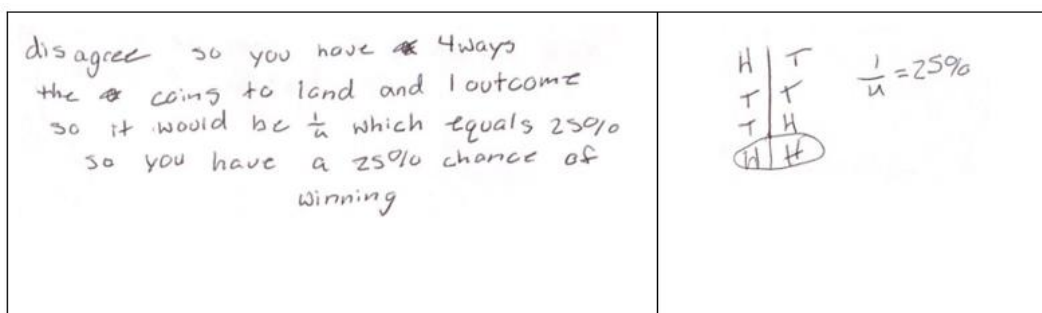 disagree so you have 4 ways
the coins to land and 1 outcome
so it would be 1/4 which equals 25%
so you have a 25% chance of
winning
H | T
T | T
T | H
H | H
1/4 = 25%